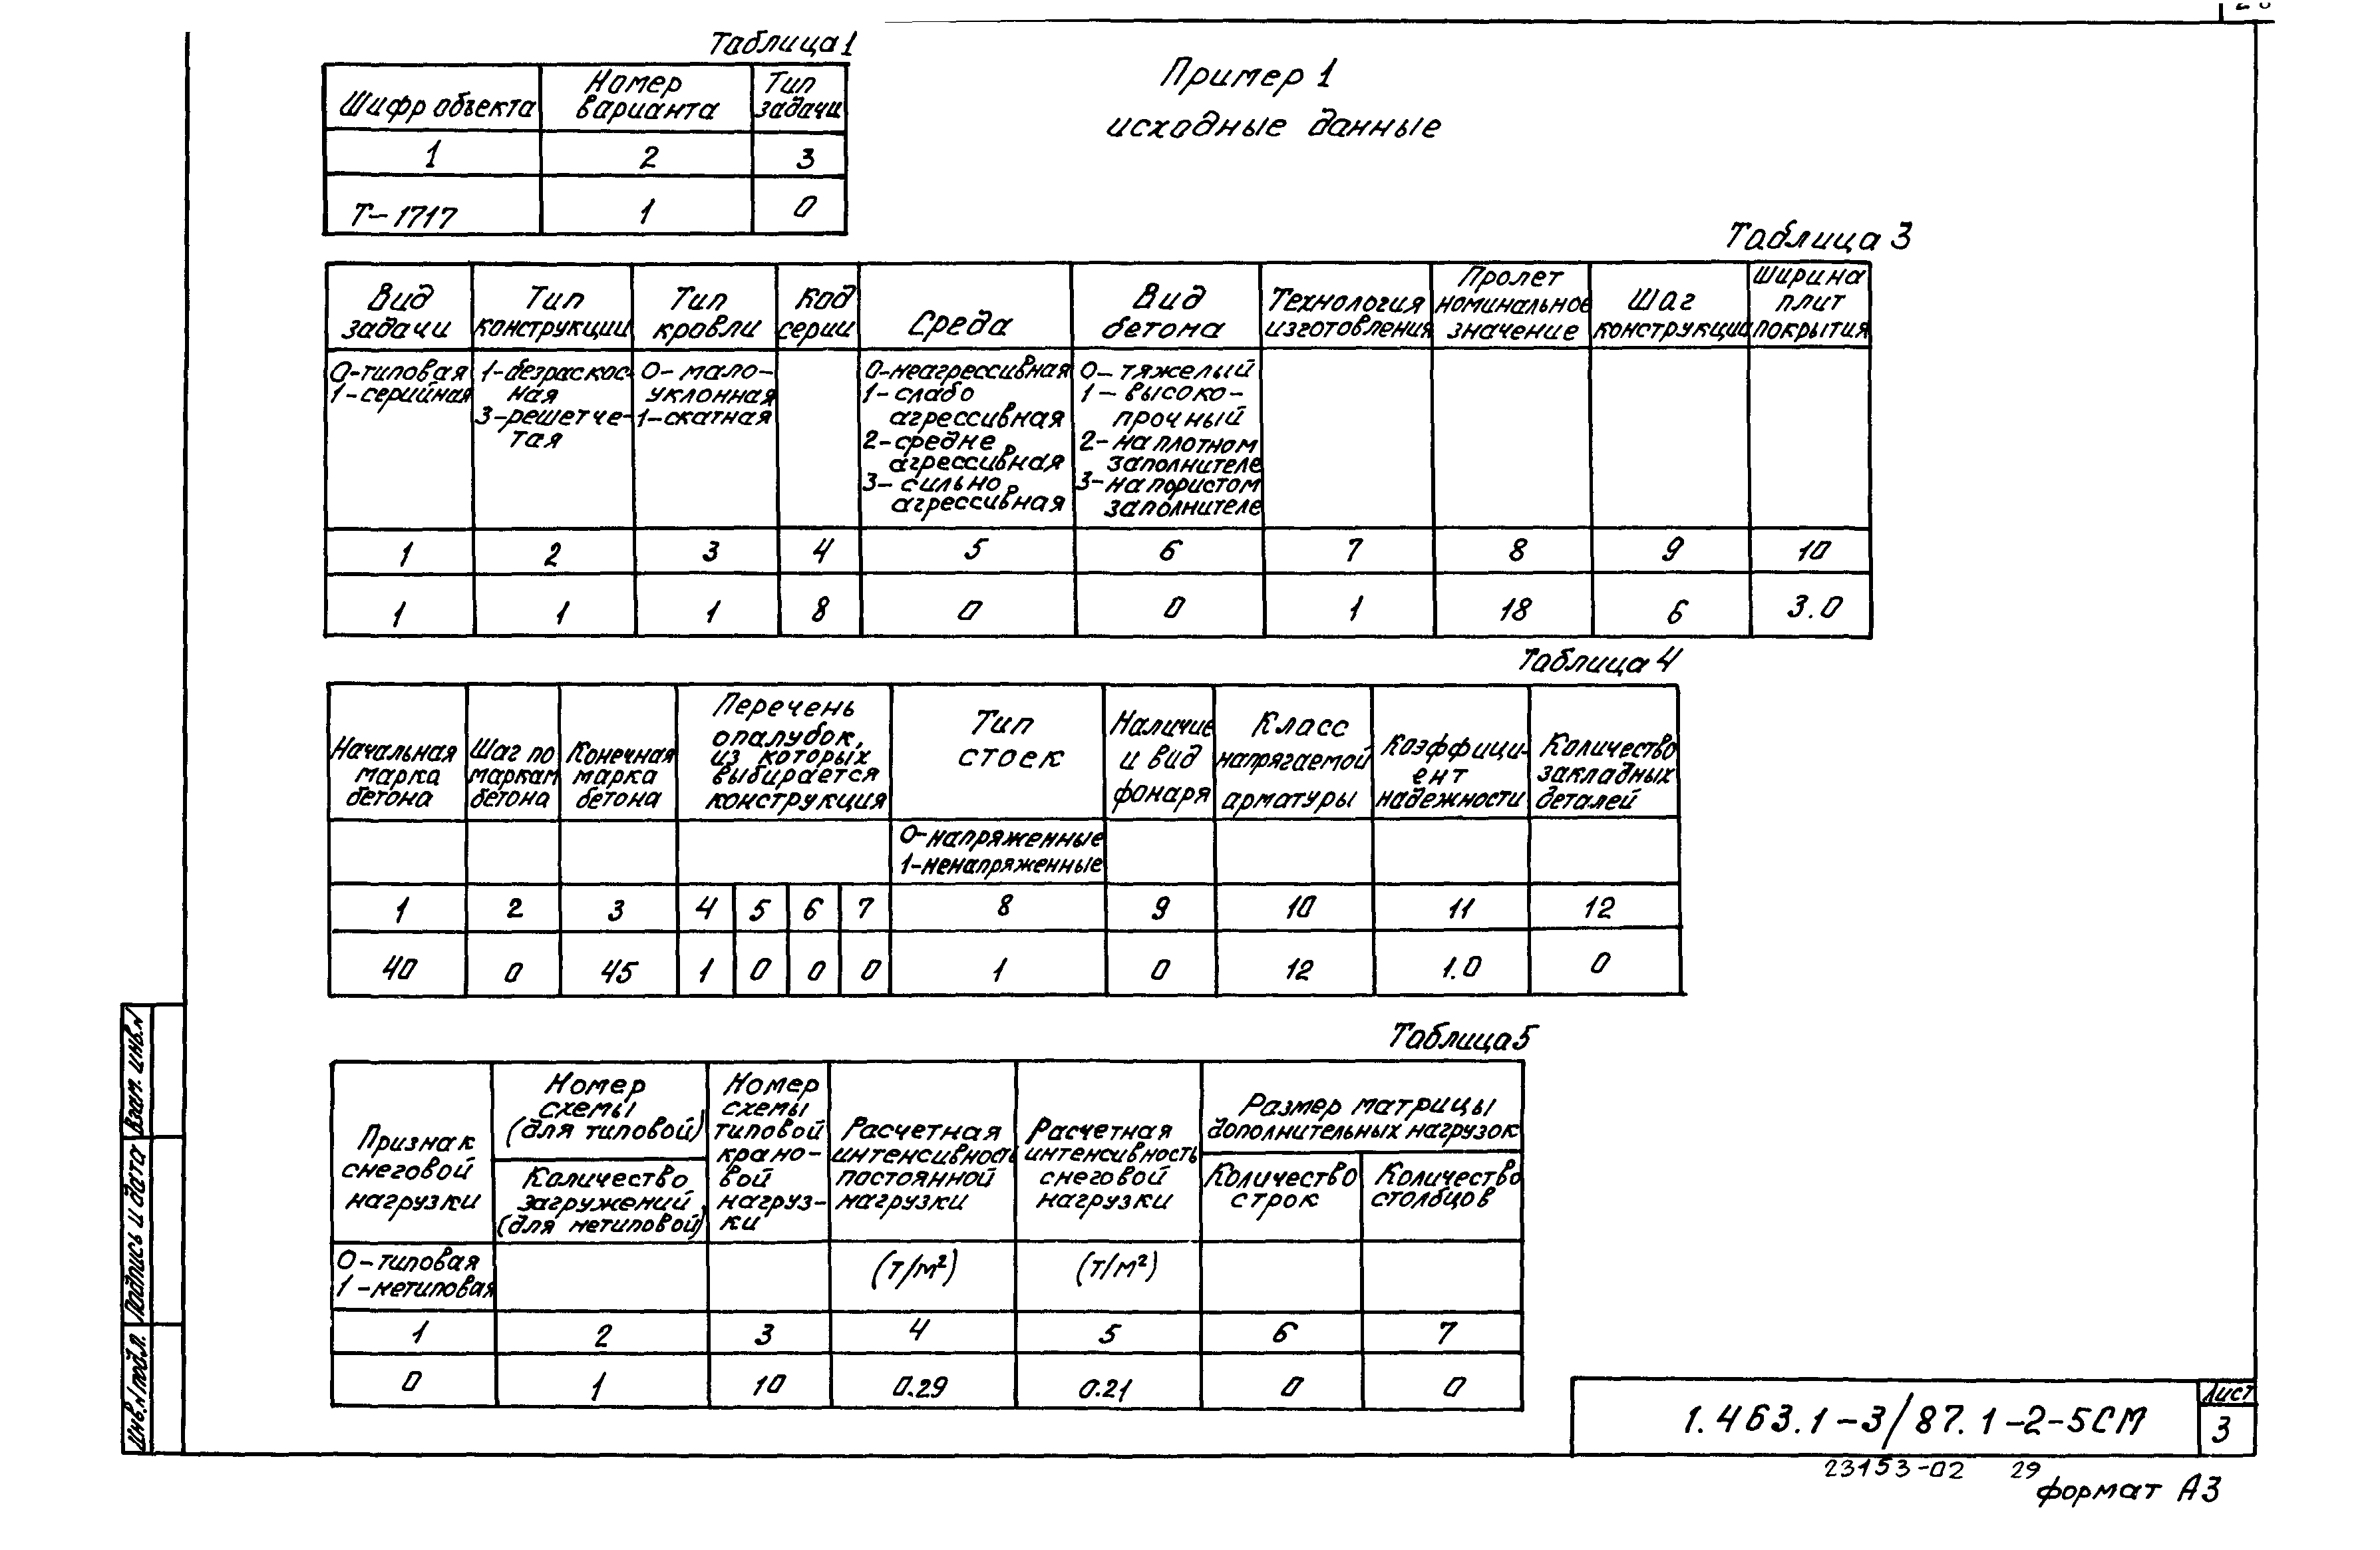 Таблица 1
Шифр объекта
Номер
варианта
Тип
задачи
1 2 3
Т-1717 1 0
Пример 1
исходные данные
Таблица 3
Вид
задачи
Тип
конструкции
Тип
кровли
Код
серии
Среда
Вид
бетона
Технология
изготовления
Пролет
номинальное
значение
Шаг
конструкции
Ширина
плит
покрытия
0-типовая
1-серийная
1-безраскос-
ная
3-решетче-
тая
0-мало-
уклонная
1-скатная
0-неагрессивная
1-слабо
агрессивная
2-средне
агрессивная
3-сильно
агрессивная
0-тяжелый
1-высоко-
прочный
2-на плотном
заполнителе
3-на пористом
заполнителе
1 2 3 4 5 6 7 8 9 10
1 1 1 8 0 0 1 18 6 3.0
Таблица 4
Начальная
марка
бетона
Шаг по
маркам
бетона
Конечная
марка
бетона
Перечень
опалубок,
из которых
выбирается
конструкция
Тип
стоек
Наличие
и вид
фонаря
Класс
напрягаемой
арматуры
Коэффици-
ент
надежности
Количество
закладных
деталей
0-напряженные
1-ненапряженные
1 2 3 4 5 6 7 8 9 10 11 12
40 0 45 1 0 0 0 1 0 12 1.0 0
Таблица 5
Признак
снеговой
нагрузки
Номер
схемы
(для типовой)
Количество
загружений
(для нетиповой)
Номер
схемы
типовой
крано-
вой
нагруз-
ки
Расчетная
интенсивность
постоянной
нагрузки
Расчетная
интенсивность
снеговой
нагрузки
Размер матрицы
дополнительных нагрузок
Количество
строк
Количество
столбцов
0-типовая
1-нетиповая
(т/м²)
(т/м²)
1 2 3 4 5 6 7
0 1 10 0.29 0.21 0 0
Взам. инв. N
Подпись и дата
Инв. N подл.
1.463.1-3/87.1-2-5СМ
Лист
3
23153-02 29
формат А3